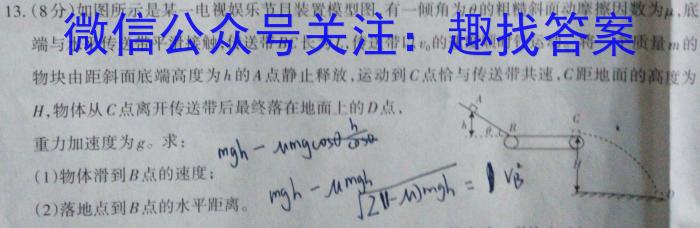 13.(8分)如图所示是某一电视娱乐节目装置模型图,有一倾角为θ的粗糙斜面动摩擦因数为μ,底
端与
微信公众号关注：趣找答案
物块由距斜面底端高度为h的A点静止释放,运动到C点恰与传送带共速,C距地面的高度为
H,物体从C点离开传送带后最终落在地面上的D点,
重力加速度为g。求:
mgh - μmgcosθ h/cosθ
(1)物体滑到B点的速度;
(2)落地点到B点的水平距离。
mgh - μmgh
√2(1-μ)mgh = V_B²
A
h
θ
B
C
H
D